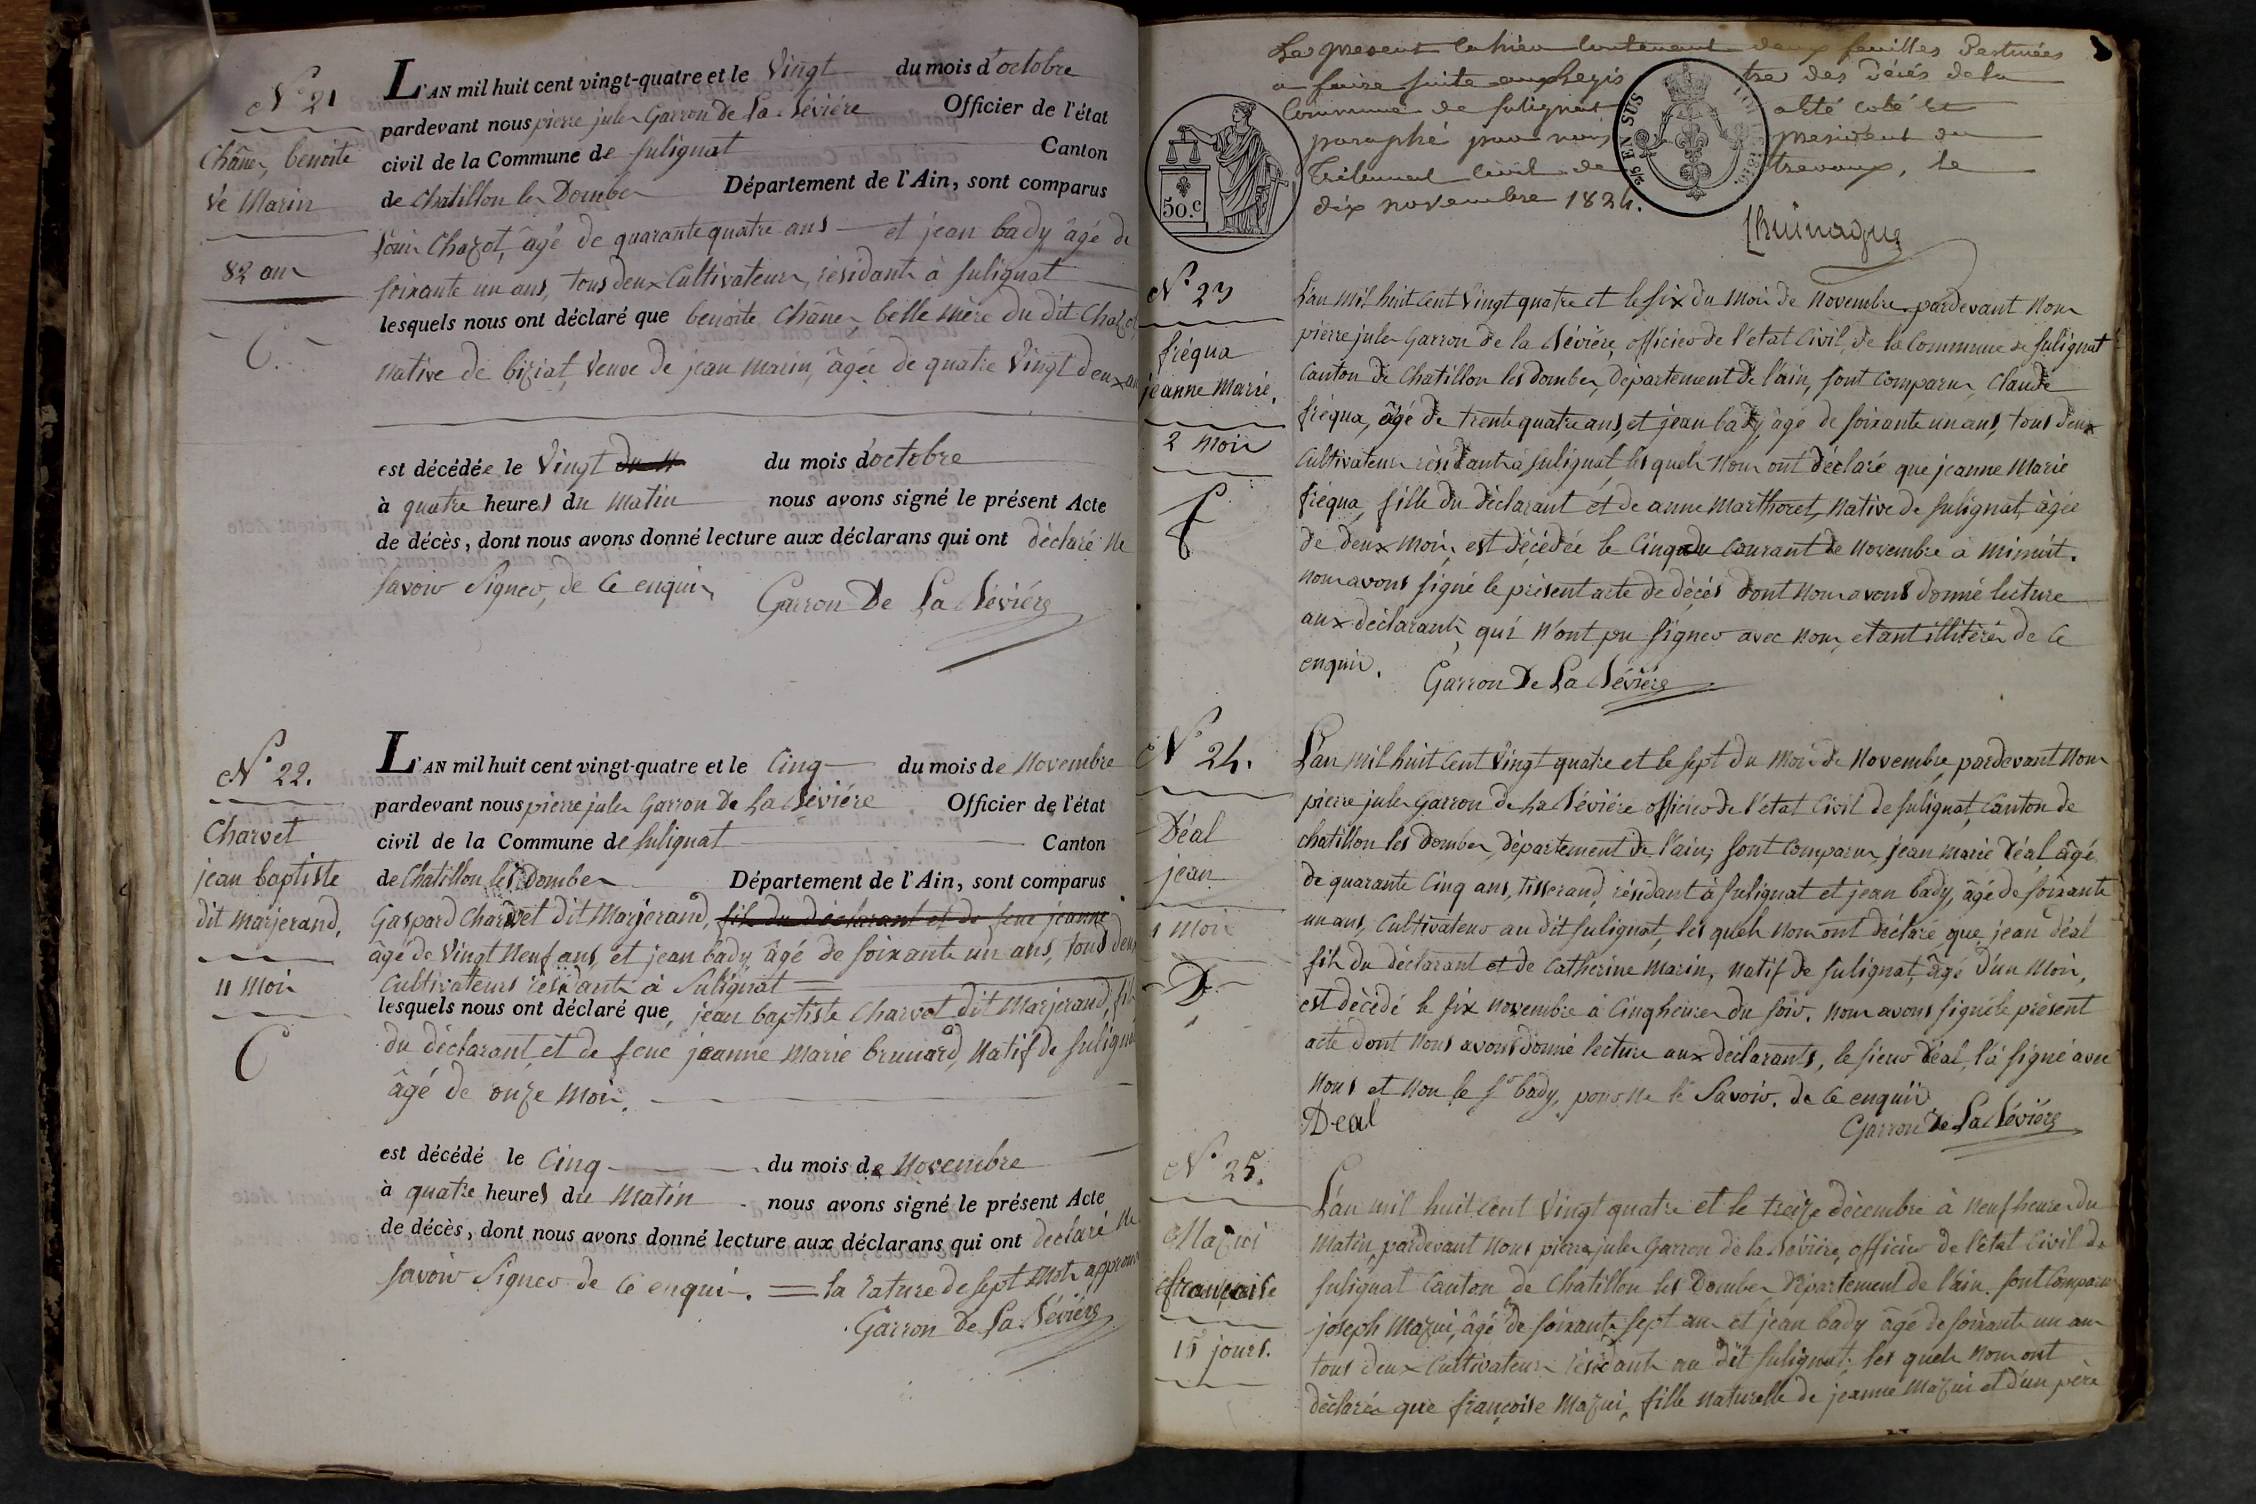 N° 21
Chânez benoite
Ve Marin
82 ans
L'AN mil huit cent vingt-quatre et le Vingt du mois d'octobre
pardevant nous pierre jules Garron de La Sévière Officier de l'état
civil de la Commune de Suligniat Canton
de Chatillon les Dombes Département de l'Ain, sont comparus
Chazot, âgé de quarante quatre ans et jean bady âgé de
soixante un ans, tous deux Cultivateurs, résidants à Sulignat
lesquels nous ont déclaré que benoite Chânez, belle mère du dit Chazot,
native de biziat, Veuve de jean marin, âgée de quatre Vingt deux ans
est décédée le Vingt du mois d'octobre
à quatre heures du matin nous avons signé le présent Acte
de décès, dont nous avons donné lecture aux déclarans qui ont déclaré ne
savoir Signer, de Ce enquis
Garron De La Sévière
N° 22.
Charvet
jean baptiste
dit Marjerand,
11 Mois
C
L'AN mil huit cent vingt-quatre et le Cinq du mois de Novembre
pardevant nous pierre jules Garron De La Sévière Officier de l'état
civil de la Commune de Sulignat Canton
de Chatillon les Dombes Département de l'Ain, sont comparus
Gaspard Charvet dit Marjerand, fils du déclarant et de feue jeanne
âgé de Vingt Neuf ans, et jean bady, âgé de soixante un ans, tous deux
Cultivateurs résidants à Sulignat
lesquels nous ont déclaré que, jean baptiste Charvet dit Marjerand, fils
du déclarant, et de feue jeanne Marie brunard, Natif de Sulignat
âgé de onze Mois,
est décédé le Cinq du mois de Novembre
à quatre heures du Matin nous avons signé le présent Acte
de décès, dont nous avons donné lecture aux déclarans qui ont déclaré Ne
savoir Signer de Ce enquis. = la rature de sept Mots approuvé
Garron de La Sévière
Le present Cahier Contenant deux feuilles Destinées
a faire suite au Registre des Décés de la
Commune de Sulignat a été coté et
paraphé par nous president du
Tribunal Civil de trevoux, le
dix novembre 1824.
50.C
2/5 EN SUS
N° 23
fréqua
jeanne Marie,
2 Mois
f
L'an mil huit Cent Vingt quatre et le six du Mois de Novembre, pardevant Nous
pierre jules Garron De la Sévière, officier de l'état Civil, de la Commune de Sulignat
Canton de Chatillon les Dombes, Département De l'ain, sont Comparus, Claude
fréqua, âgé de trente quatre ans, et jean bady, âgé de soixante un ans, tous deux
Cultivateurs résidants à Sulignat, les quels Nous ont Déclaré que jeanne Marie
fréqua, fille du Déclarant et de anne Marthoret, Native de Sulignat, âgée
de deux Mois, est Décédée le Cinq du Courant de Novembre à Minuit.
nous avons signé le présent acte de décès dont Nous avons donné lecture
aux déclarants, qui N'ont pu signer avec Nous, etant illitérés de Ce
enquis.
Garron De La Sévière
N° 24.
Déal
jean
1 Mois
D
L'an Mil huit Cent Vingt quatre et le sept du Mois de Novembre, pardevant Nous
pierre jules Garron de La Sévière officier de l'état Civil de Sulignat, Canton de
Chatillon les Dombes, Département de l'ain; sont Comparus jean Marie Déal âgé
de quarante Cinq ans, Tisserand, résidant à Sulignat et jean bady, âgé de soixante
un ans, Cultivateur au dit Sulignat, les quels Nous ont déclaré que, jean Déal
fils du déclarant et de Catherine Marin, Natif de Sulignat, âgé d'un Mois,
est décédé le six Novembre à Cinq heures du soir. Nous avons signé le présent
acte dont Nous avons donné lecture aux déclarants, le sieur Déal, l'a signé avec
Nous et Non le sr bady, pour Ne le Savoir. de Ce enquis
Deal
Garron De La Sévière
N° 25.
Mazui
françoise
15 jours.
L'an mil huit Cent Vingt quatre et le treize décembre à Neuf heures du
Matin, pardevant Nous pierre jules Garron de la Sévière, officier de l'état Civil de
Sulignat Canton de Chatillon les Dombes Département de l'ain. sont Comparus
joseph Mazui, âgé de soixante sept ans et jean bady âgé de soixante un ans
tous deux Cultivateurs résidants au dit Sulignat; les quels Nous ont
déclaré que françoise Mazui, fille Naturelle de jeanne Mazui et d'un père